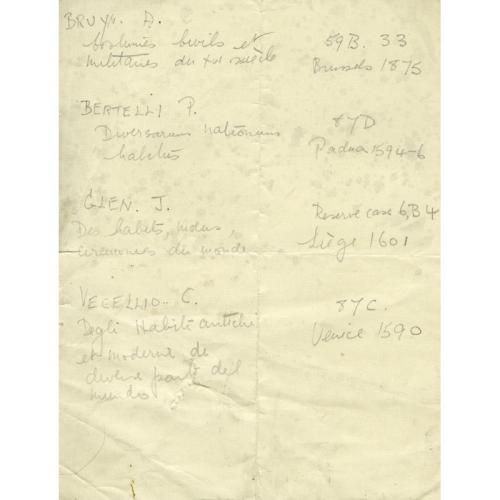 BRUYN. A.
Costumes civils et 59B. 33
militaires du XVI siècle Brussels 1875
BERTELLI P. 87D
Diversarum nationum Padua 1594-6
habitus
GLEN. J. Reserve case 6, B4
Des habits, moeurs, Liège 1601
ceremonies du monde
VECELLIO. C. 87C.
Degli Habiti antichi Venice 1590
et moderni di
diverse parti del
mundo